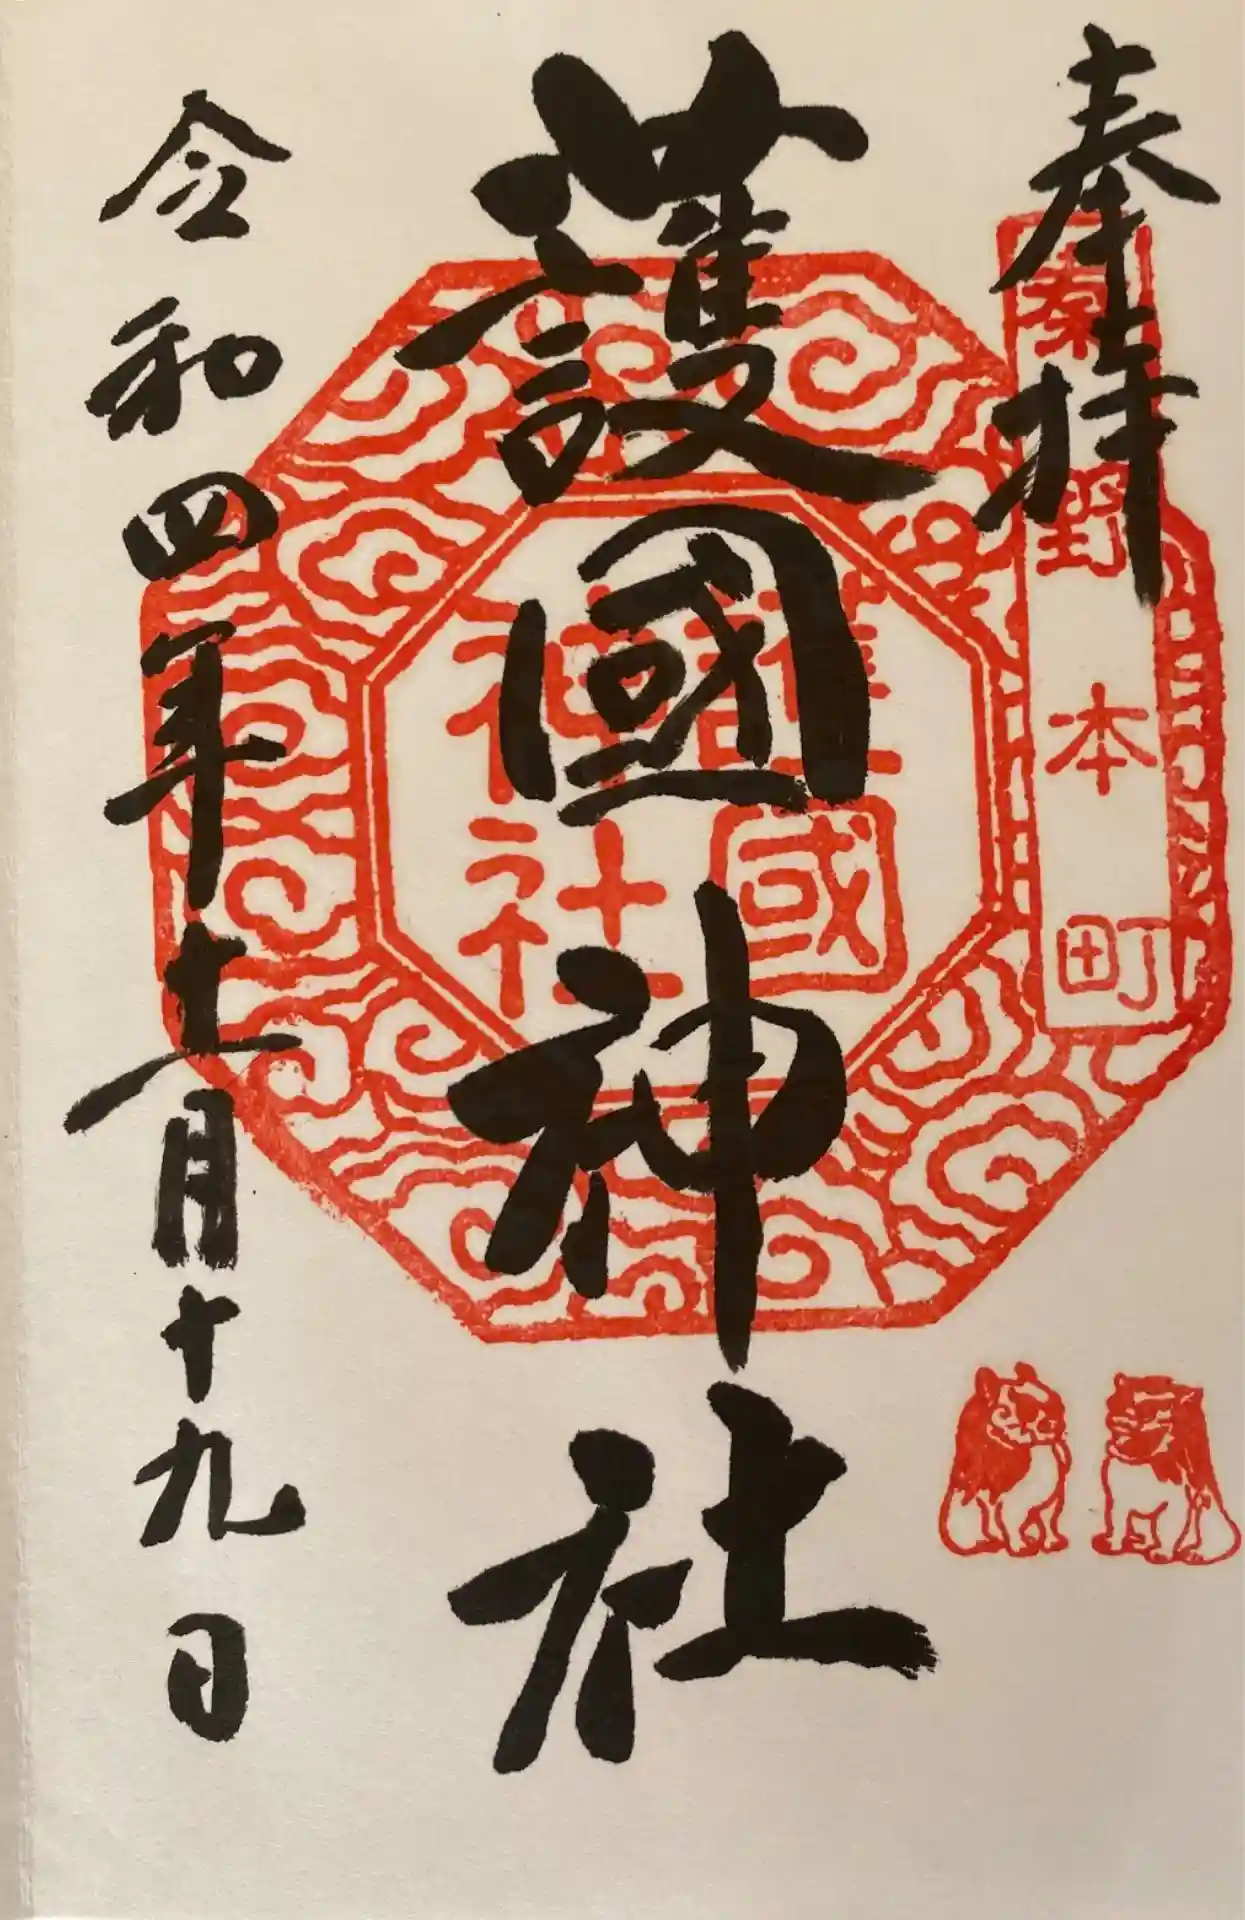 奉拝
秦野本町
護國神社
護國
神社
令和四年十一月十九日